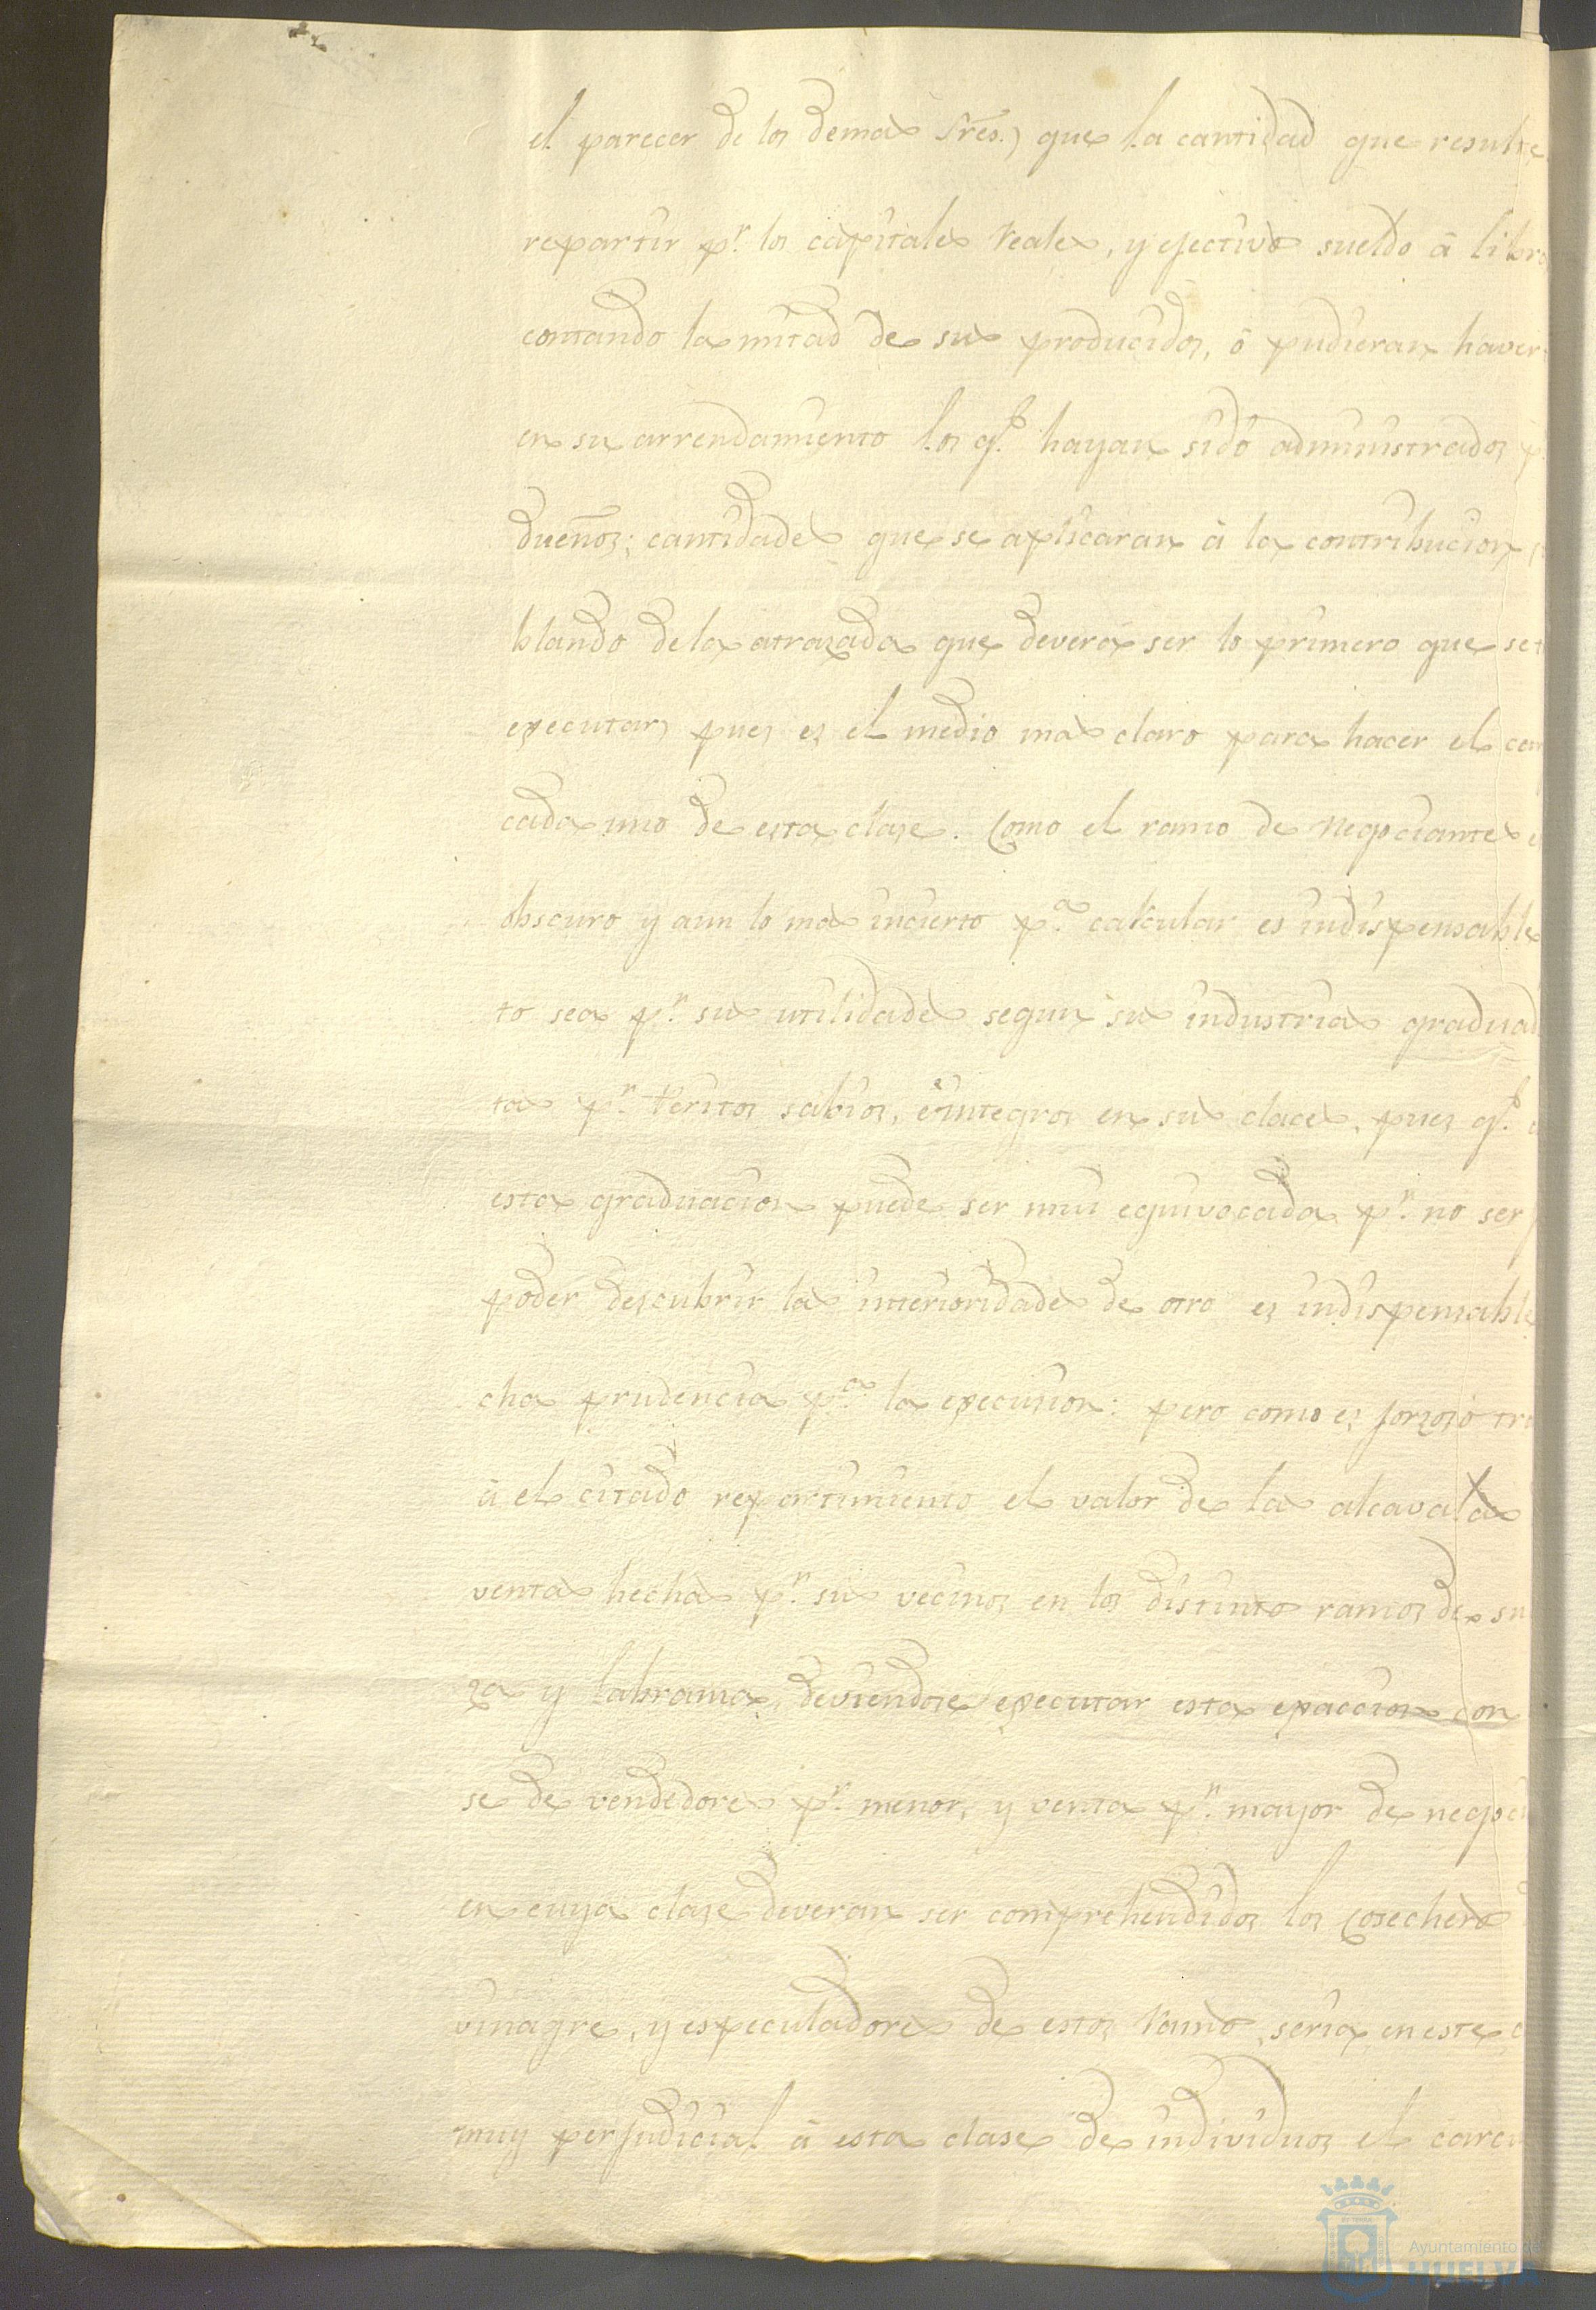 el parecer de los demas Sres.) que la cantidad que resulte
repartir pr. los capitales reales, y efectivos sueldo á libra
contando la mitad de sus producidos, ó pudieran haver
en su arrendamiento los qe. hayan sido administrados p.
dueños; cantidades que se aplicaran á la contribucion
blando de la atrazada que deverá ser lo primero que se
executar, pues es el medio mas claro para hacer el
cada uno de esta clase. Como el ramo de Negociantes
obscuro y aun lo mas incierto pa. calcular es indispensable
to sea pr. sus utilidades segun su industria graduad
tas pr. Peritos sabios, é integros en sus claces, pues qe.
esta graduacion puede ser mui equivocada pr. no ser
poder descubrir las interioridades de otro es indispensable
cha prudencia pa. la execusion: pero como es forzoso tr
á el citado repartimiento el valor de las alcavalas
ventas hechas pr. sus vecinos en los distintos ramos de su
za y labransa, deviendose executar esta exaccion con
se de vendedores pr. menor, y ventas pr. mayor de negoci
en cuya clase deveran ser comprehendidos los cosecheros
vinagre, y especuladores de estos ramos, seria en este
muy perjudicial á esta clase de individuos el
Ayuntamiento de
HUELVA